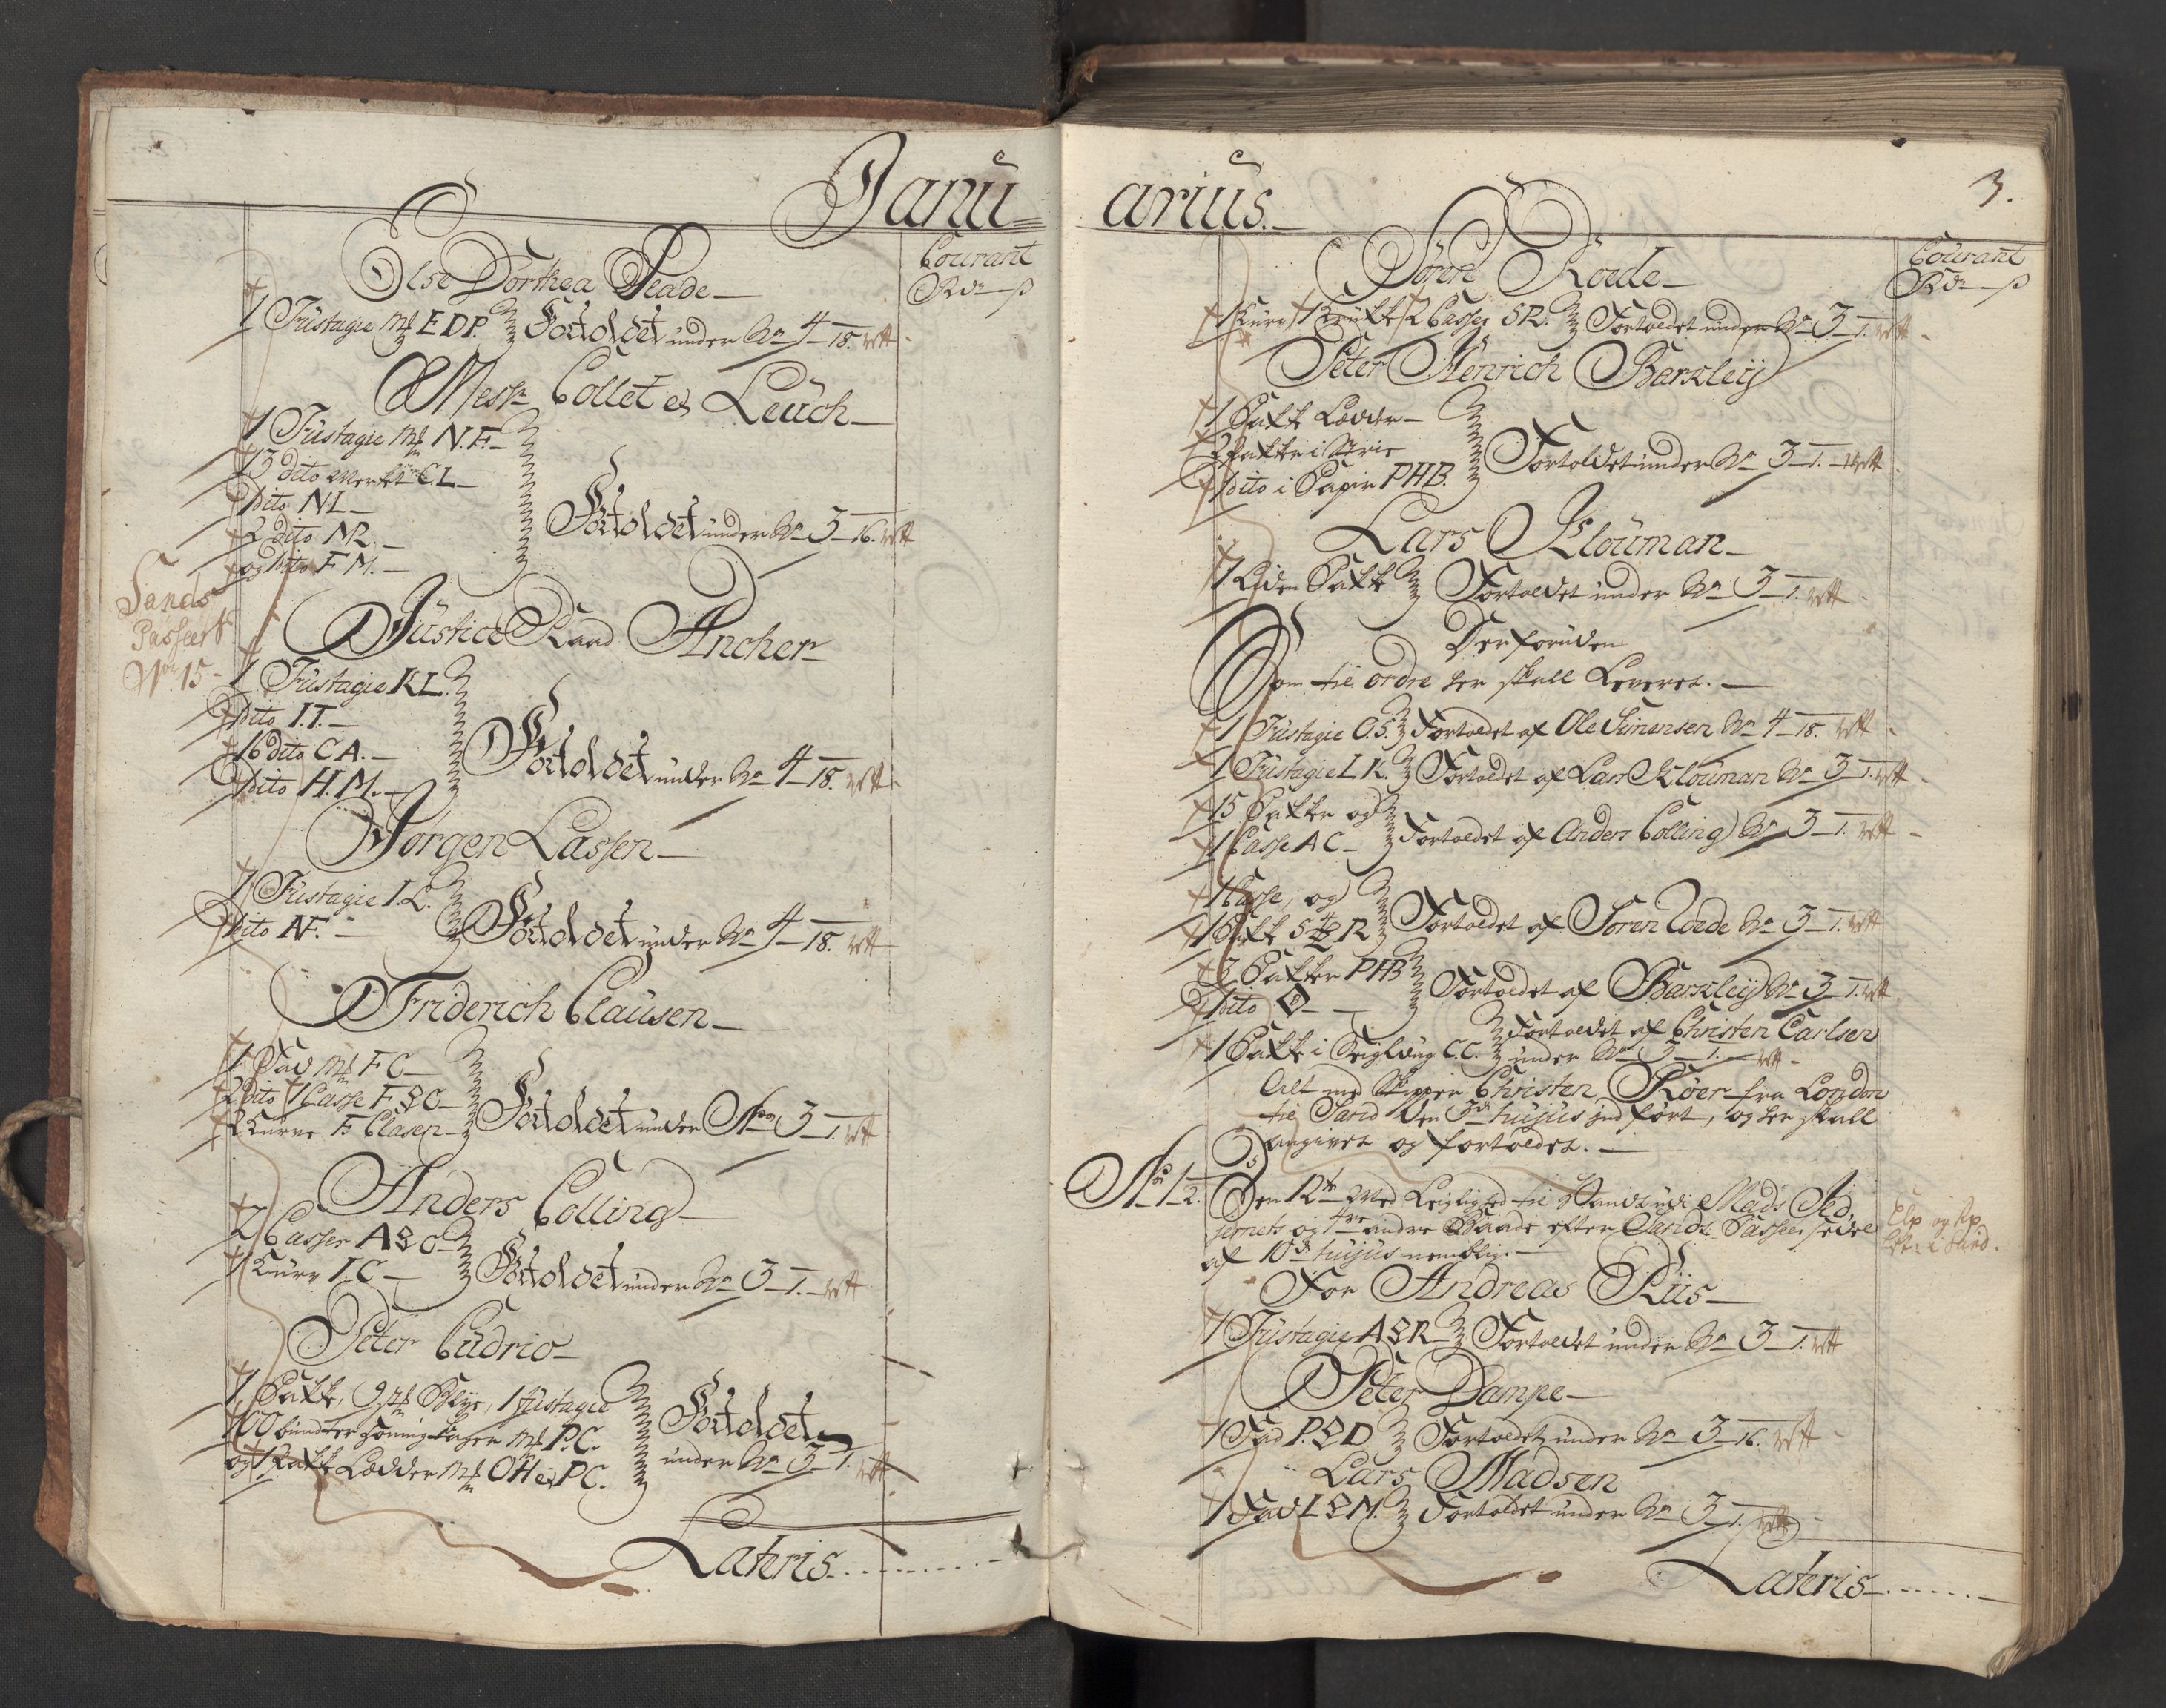 Janu-
Courant
Rdr ß
Else Dorthea Peade
1 Fustagie Mk EDP. Fortoldet under No 4-18. rtt
Messrs Collet et Leuch
1 Fustagie Mk N.F.
13 dito Merkt C L
1 dito NL
2 dito NR.
og 1 dito F M.
Fortoldet under No 3-16. rtt
Sands
Passeer
No 15
Justice Raad Ancher
1 Fustagie KL.
1 dito I.T.
16 dito C A.
1 dito H.M.
Fortoldet under No 4-18. rtt
Jørgen Lassen
1 Fustagie I.L.
1 dito NF.
Fortoldet under No 4-18. rtt
Friderich Clausen
1 Fad Mk F C
2 dito 1 Casse F & C
2 Kurve F. Clasen
Fortoldet under No 3-1. rtt
Anders Colling
2 Casser A & C
1 Kurv I.C
Fortoldet under No 3-1. rtt
Peter Cudrio
1 Pakk, 9 Blye, 1 fustagie
100 bundter Mk P.C.
og 1 Pakk Lædder Mk OH et P.C.
Fortoldet
under No 3-1. rtt
Lateris
arius.
3.
Courant
Rdr ß
Sören Roede
1 Kurv 1 Pakk 2 Casser SR. Fortoldet under No 3-1. rtt
Peter Henrich Barkleij
1 Pakk Lædder
2 Pakker i Strie
1 dito i Papir PHB.
Fortoldet under No 3-1. rtt
Lars Klouman
1 Liden Pakk Fortoldet under No 3-1. rtt
Derforuden
Som til ordre her skall Leveres.
1 Fustagie O.S. Fortoldet af Ole Simensen No 4-18. rtt
1 Fustagie L K. Fortoldet af Lars Klouman No 3-1. rtt
15 Pakker og
1 Casse A C Fortoldet af Anders Colling No 3-1. rtt
1 Casse, og
1 Pakk S R Fortoldet af Sören Roede No 3-1. rtt
3 Pakker PHB
1 dito
Fortoldet af Barkleij No 3-1. rtt
1 Pakk i Seigldug C.C. Fortoldet af Christen Carlsen
under No 3-1. rtt
Alt med Skipper Christen Röer fra London
til Sand den 3de hujus indført, og her skall
angives og fortoldes.
No 12.
Den 12te Med Leiglighed til Mads
og 4re andre Baade efter Sands Passeer sedel
af 10de hujus nemblig.
For Andreas Riis
1 Fustagie A & R Fortoldet under No 3-1. rtt
Peter Dampe
1 Fad P. & D Fortoldet under No 3-16. rtt
Lars Madsen
1 Fad L & M. Fortoldet under No 3-1. rtt
Lateris